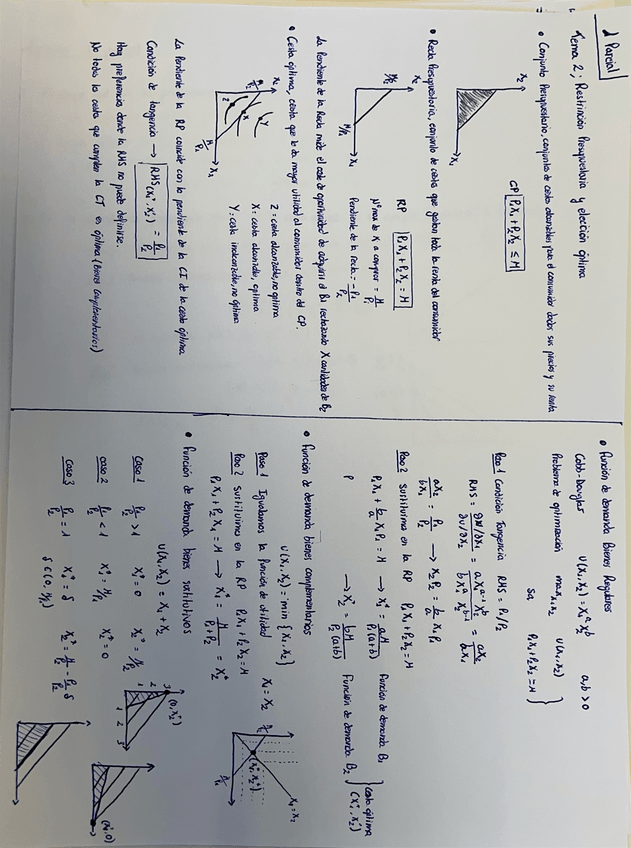 1 Parcial
Tema 2; Restricción Presupuestaria y elección óptima
• Conjunto Presupuestario, conjunto de cestas alcanzables para el consumidor dados sus precios y su renta
X2
X1
CP P1X1 + P2X2 ≤ M
• Recta Presupuestaria, conjunto de cestas que gastan toda la renta del consumidor
X2
M/P2
M/P1
X1
RP P1X1 + P2X2 = M
Nº max de X a comprar = M/P1
Pendiente de la recta = -P1/P2
La pendiente de la Recta mide el coste de oportunidad de adquirir el B1 rechazando X cantidades de B2
• Cesta óptima, cesta que le da mayor utilidad al consumidor dentro del CP.
X2
M/P2
Z X Y
M/P1
X1
Z = cesta alcanzable, no óptima
X: cesta alcanzable, óptima
Y: cesta inalcanzable, no óptima
La Pendiente de la RP coincide con la pendiente de la CI de la cesta óptima.
Condición de tangencia → RMS(X1*, X2*) = P1/P2
Hay preferencias donde la RMS no puede definirse.
No toda la cesta que cumplen la CT es óptima (bienes complementarios)
• Función de demanda Bienes Regulares
Cobb-Douglas U(X1, X2) = X1^a X2^b a, b > 0
Problema de optimización max X1, X2 U(X1, X2)
Sa P1X1 + P2X2 = M }
Paso 1 Condición Tangencia RMS = P1/P2
RMS = ∂U/∂X1 / ∂U/∂X2 = a X1^a-1 X2^b / b X1^a X2^b-1 = aX2 / bX1
aX2 / bX1 = P1/P2 → X2P2 = b/a X1P1
Paso 2 Sustituimos en la RP P1X1 + P2X2 = M
P1X1 + b/a X1P1 = M → X1* = aM / P1(a+b) Función de demanda B1
→ X2* = bM / P2(a+b) Función de demanda B2 } cesta óptima (X1*, X2*)
• Función de demanda bienes complementarios
U(X1, X2) = min {X1, X2}
Paso 1 Igualamos la función de utilidad X1 = X2
Paso 2 Sustituimos en la RP P1X1 + P2X2 = M
P1X1 + P2X1 = M → X1* = M / P1 + P2 = X2*
X1 = X2
(X1*, X2*)
• Función de demanda bienes sustitutivos
U(X1, X2) = X1 + X2
Caso 1 P1/P2 > 1 X1* = 0 X2* = M/P2
(0, X2*)
Caso 2 P1/P2 < 1 X1* = M/P1 X2* = 0
(X1*, 0)
Caso 3 P1/P2 = 1 X1* = δ X2* = M/P2 - P1/P2 δ
δ ∈ (0, M/P1)